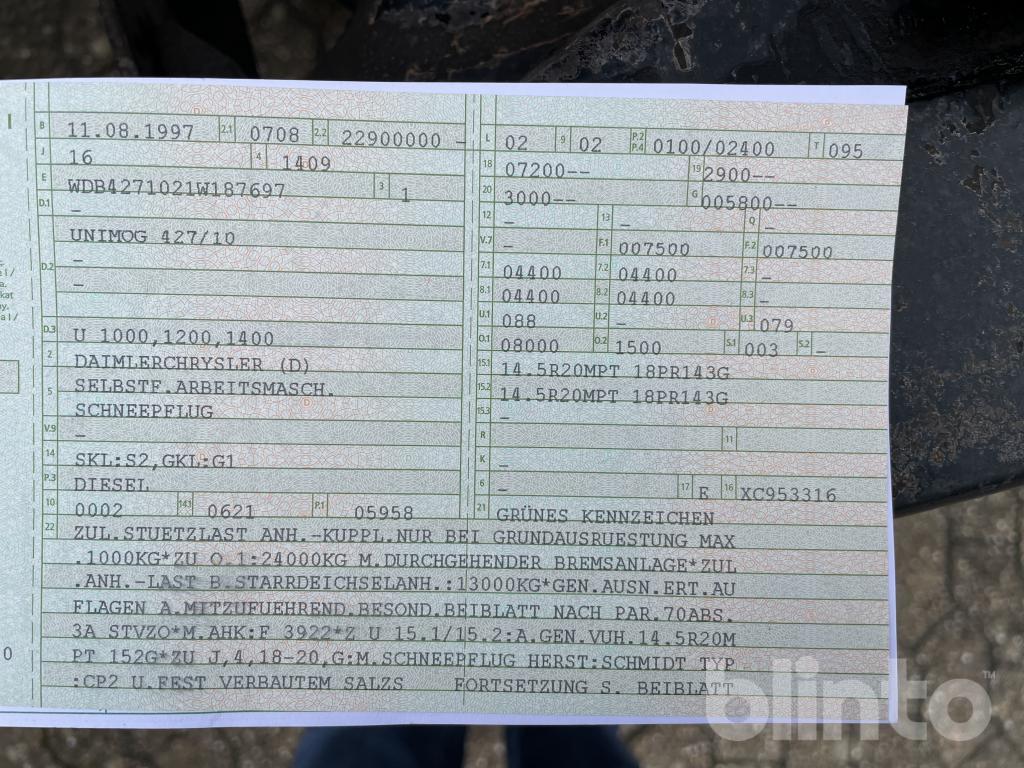 B 11.08.1997 2.1 0708 2.2 22900000 –
J 16 4 1409
E WDB4271021W187697 3 1
D.1 –
UNIMOG 427/10
D.2 –
–
D.3 U 1000,1200,1400
2 DAIMLERCHRYSLER (D)
5 SELBSTF.ARBEITSMASCH.
SCHNEEPFLUG
V.9 –
14 SKL:S2,GKL:G1
P.3 DIESEL
10 0002 14.1 0621 P.1 05958
L 02 9 02 P.2 P.4 0100/02400 T 095
18 07200-- 19 2900--
20 3000-- G 005800--
12 – 13 – Q –
V.7 – F.1 007500 F.2 007500
7.1 04400 7.2 04400 7.3 –
8.1 04400 8.2 04400 8.3 –
U.1 088 U.2 – U.3 079
O.1 08000 O.2 1500 S.1 003 S.2 –
15.1 14.5R20MPT 18PR143G
15.2 14.5R20MPT 18PR143G
15.3 –
R 11
K –
6 – 17 E 16 XC953316
21 GRÜNES KENNZEICHEN
22 ZUL.STUETZLAST ANH.-KUPPL.NUR BEI GRUNDAUSRUESTUNG MAX
.1000KG*ZU O.1:24000KG M.DURCHGEHENDER BREMSANLAGE*ZUL
.ANH.-LAST B.STARRDEICHSELANH.:13000KG*GEN.AUSN.ERT.AU
FLAGEN A.MITZUFUEHREND.BESOND.BEIBLATT NACH PAR.70ABS.
3A STVZO*M.AHK:F 3922*Z U 15.1/15.2:A.GEN.VUH.14.5R20M
PT 152G*ZU J,4,18-20,G:M.SCHNEEPFLUG HERST:SCHMIDT TYP
:CP2 U.FEST VERBAUTEM SALZS FORTSETZUNG S. BEIBLATT
blinto™